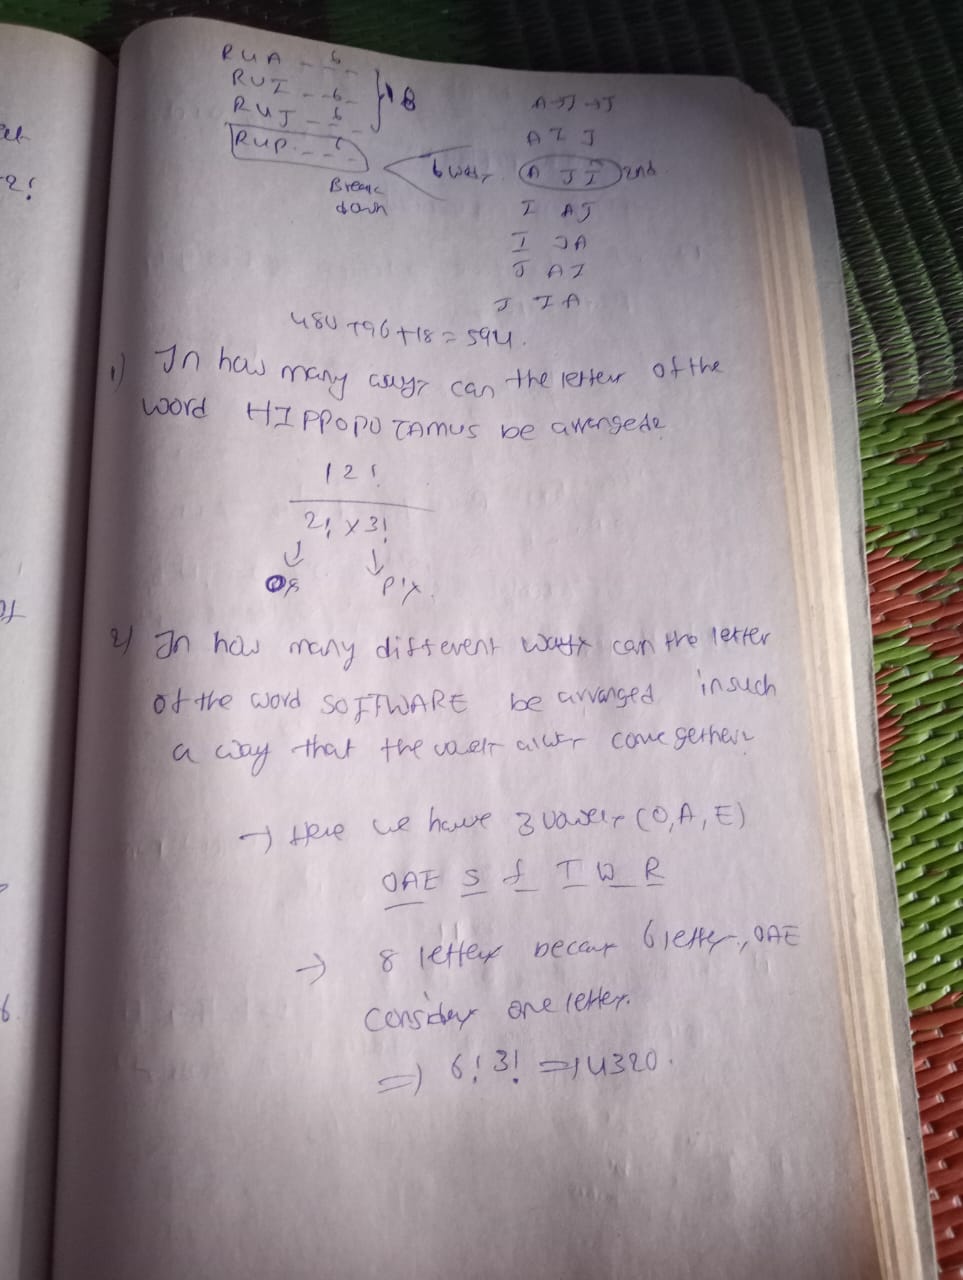 RUA _ _6_ _
RUI _ _6_ _
RUJ _ 6 _ _
} 18
RUP. _ _6_
Break
down
6 ways
A IJ → J
A I J
A J I 2nd
I A J
I J A
J A I
J I A
480 + 96 + 18 = 594.
1) In how many ways can the letter of the
word HIPPOPOTAMUS be arranged?
12!
2! x 3!
↓ ↓
O's P's
2) In how many different ways can the letter
of the word SOFTWARE be arranged in such
a way that the vowels come gether?
→ Here we have 3 vowels (O, A, E)
OAE S f T W R
→ 8 letter 6 letter, OAE
Consider one letter.
=> 6! 3! => 4320.